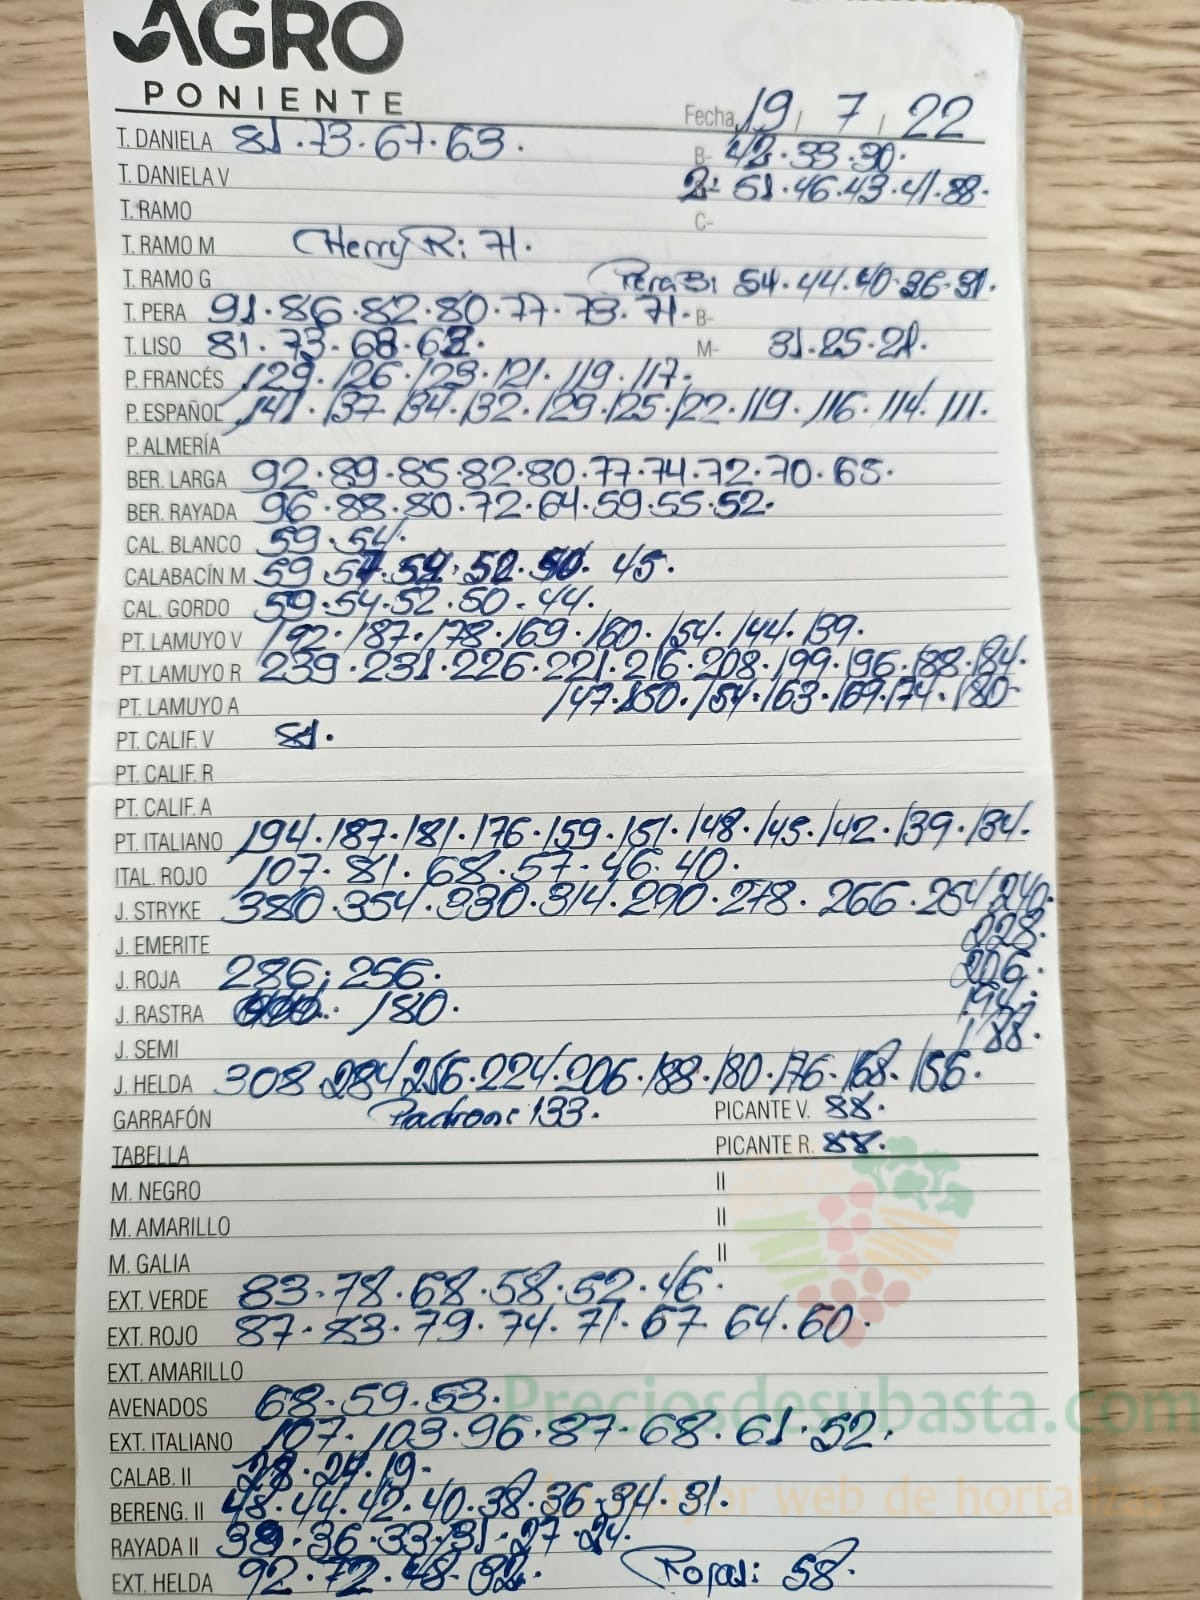 AGRO
PONIENTE
Fecha 19 / 7 / 22
T. DANIELA 81.73.67.63. B- 42.33.30.
T. DANIELA V 2: 61.46.43.41.38.
T. RAMO C-
T. RAMO M Cherry R: 71.
T. RAMO G Pera B: 54.44.40.36.31.
T. PERA 91.86.82.80.77.73.71. B-
T. LISO 81.73.68.62. M- 31.25.21.
P. FRANCÉS 129.126.123.121.119.117.
P. ESPAÑOL 141.137.134.132.129.125.122.119.116.114.111.
P. ALMERÍA
BER. LARGA 92.89.85.82.80.77.74.72.70.65.
BER. RAYADA 96.88.80.72.64.59.55.52.
CAL. BLANCO 59.54.
CALABACÍN M 59.57.54.52.50.45.
CAL. GORDO 59.54.52.50.44.
PT. LAMUYO V 192.187.178.169.160.154.144.139.
PT. LAMUYO R 239.231.226.221.216.208.199.196.188.184.
PT. LAMUYO A 147.150.154.163.169.174.180.
PT. CALIF. V 81.
PT. CALIF. R
PT. CALIF. A
PT. ITALIANO 194.187.181.176.159.151.148.145.142.139.134.
ITAL. ROJO 107.81.68.57.46.40.
J. STRYKE 380.354.330.314.290.278.266.254.240.
J. EMERITE 228.
J. ROJA 286.256. 206.
J. RASTRA 180. 194.
J. SEMI 188.
J. HELDA 308.284.256.224.206.188.180.176.168.156.
GARRAFÓN Padron: 133. PICANTE V. 88.
TABELLA PICANTE R. 88.
M. NEGRO II
M. AMARILLO II
M. GALIA II
EXT. VERDE 83.78.68.58.52.46.
EXT. ROJO 87.83.79.74.71.67.64.60.
EXT. AMARILLO
AVENADOS 68.59.53.
Preciosdesubasta.com
EXT. ITALIANO 107.103.96.87.68.61.52.
CALAB. II 28.24.19.
BERENG. II 48.44.42.40.38.36.34.31.
web de hortalizas
RAYADA II 39.36.33.31.27.24.
EXT. HELDA 92.72.48.32. Rojas: 58.